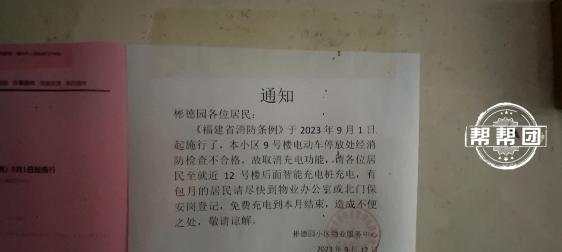 通知
彬德园各位居民：
《福建省消防条例》于 2023 年 9 月 1 日
起施行了，本小区 9 号楼电动车停放处经消
防检查不合格，故取消充电功能，请各位居
民至就近 12 号楼后面智能充电桩充电，有
包月的居民请尽快到物业办公室或北门保
安岗登记，免费充电到本月结束，造成不便
之处，敬请谅解。
彬德园小区物业服务中心
2023 年 9 月 12 日
9月1日起施行
帮帮团